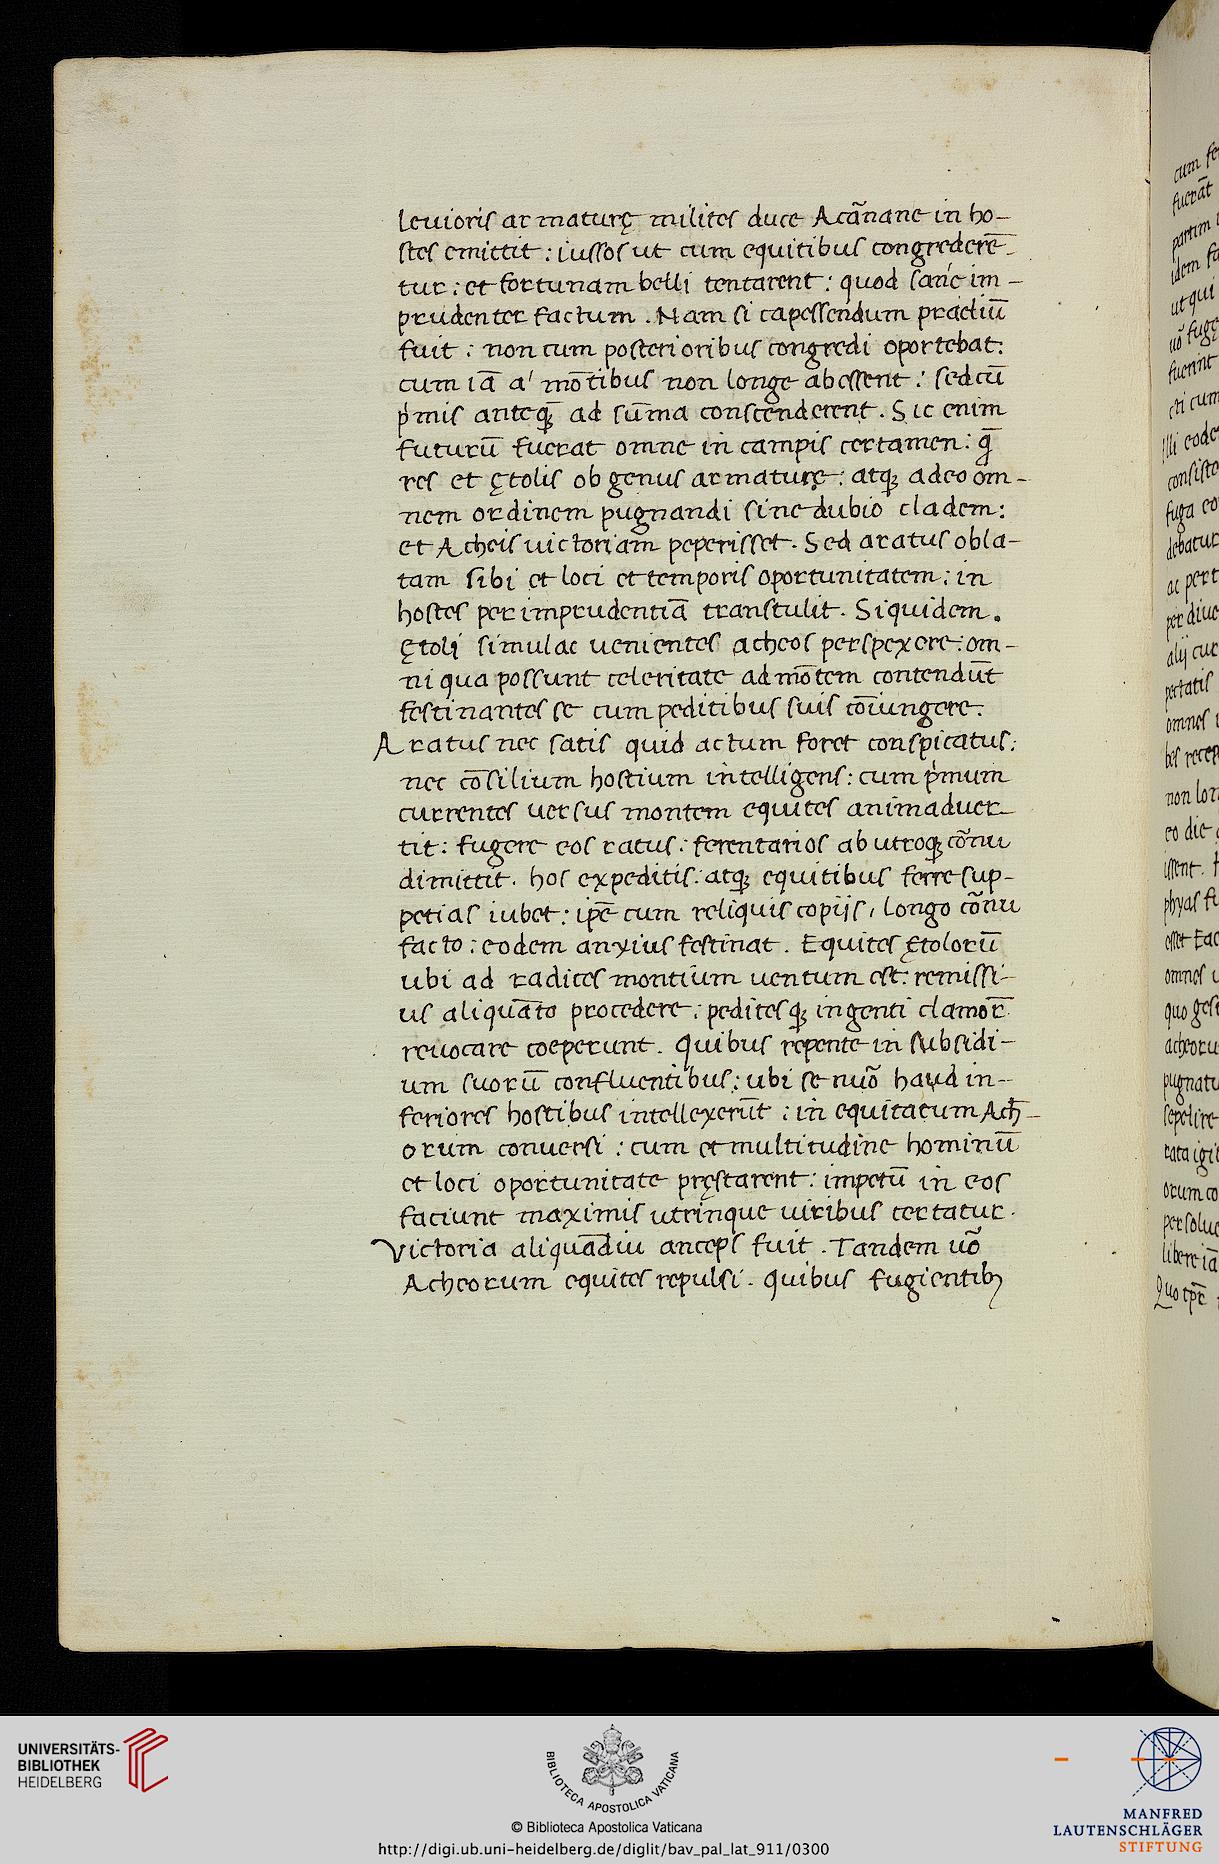 leuioris armaturę milites duce Acãnane in ho-
stes emittit : iussos ut cum equitibus congrederē-
tur : et fortunam belli tentarent : quod sane im-
prudenter factum . Nam si capessendum praeliū
fuit : non cum posterioribus congredi oportebat :
cum iā a' mōtibus non longe abessent : sed cū
pͥmis anteqꝫ̄ ad sūma conscenderent . Sic enim
futurū fuerat omne in campis certamen : q̄
res et ętolis ob genus armaturę : atqꝫ adeo om-
nem ordinem pugnandi sine dubio cladem :
et Acheis uictoriam peperisset . Sed aratus obla-
tam sibi et loci et temporis oportunitatem : in
hostes per imprudentiā transtulit . Siquidem .
Ętoli simulac uenientes acheos perspexere : om-
ni qua possunt celeritate ad mōtem contendūt
festinantes se cum peditibus suis cōiungere .
Aratus nec satis quid actum foret conspicatus :
nec cōsilium hostium intelligens : cum pͥmum
currentes uersus montem equites animaduer-
tit : fugere eos ratus : ferentarios ab utroqꝫ cōnu
dimittit . hos expeditis : atqꝫ equitibus ferre sup-
petias iubet : ip̄e cum reliquis copijs , longo cōnu
facto : eodem anxius festinat . Equites ętolorū
ubi ad radices montium uentum est : remissi-
us aliquāto procedere : peditesqꝫ ingenti clamor̄
reuocare coeperunt . Quibus repente in subsidi-
um suorū confluentibus : ubi se nūo haud in-
feriores hostibus intellexerūt : in equitatum Ach̄-
orum conuersi : cum et multitudine hominū
et loci oportunitate pręstarent : impetū in eos
faciunt maximis utrinque uiribus certatur .
Victoria aliquādiu anceps fuit . Tandem uō
Acheorum equites repulsi . Quibus fugientibꝫ
cum fe
fuerāt
partim
idem fa
ut qui
uō fuge
fuerint
cti cum
illi eode
consiste
fuga eo
debatur
ac pert
per diue
alij cur
pectatis
omnes
bes recep
non lon
eo die
issent .
phyas fu
esset fac
omnes u
quo gest
acheoru
pugnatu
sepelire
rata igit
orum co
persolue
libere iā
Quo tp̄r
UNIVERSITÄTS-
BIBLIOTHEK
HEIDELBERG
BIBLIOTECA APOSTOLICA VATICANA
© Biblioteca Apostolica Vaticana
http://digi.ub.uni-heidelberg.de/diglit/bav_pal_lat_911/0300
MANFRED
LAUTENSCHLÄGER
STIFTUNG